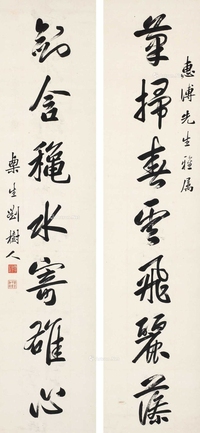 惠溥先生雅属
筆掃春雲飛麗藻
劍含穐水寄雄心
生劉樹人